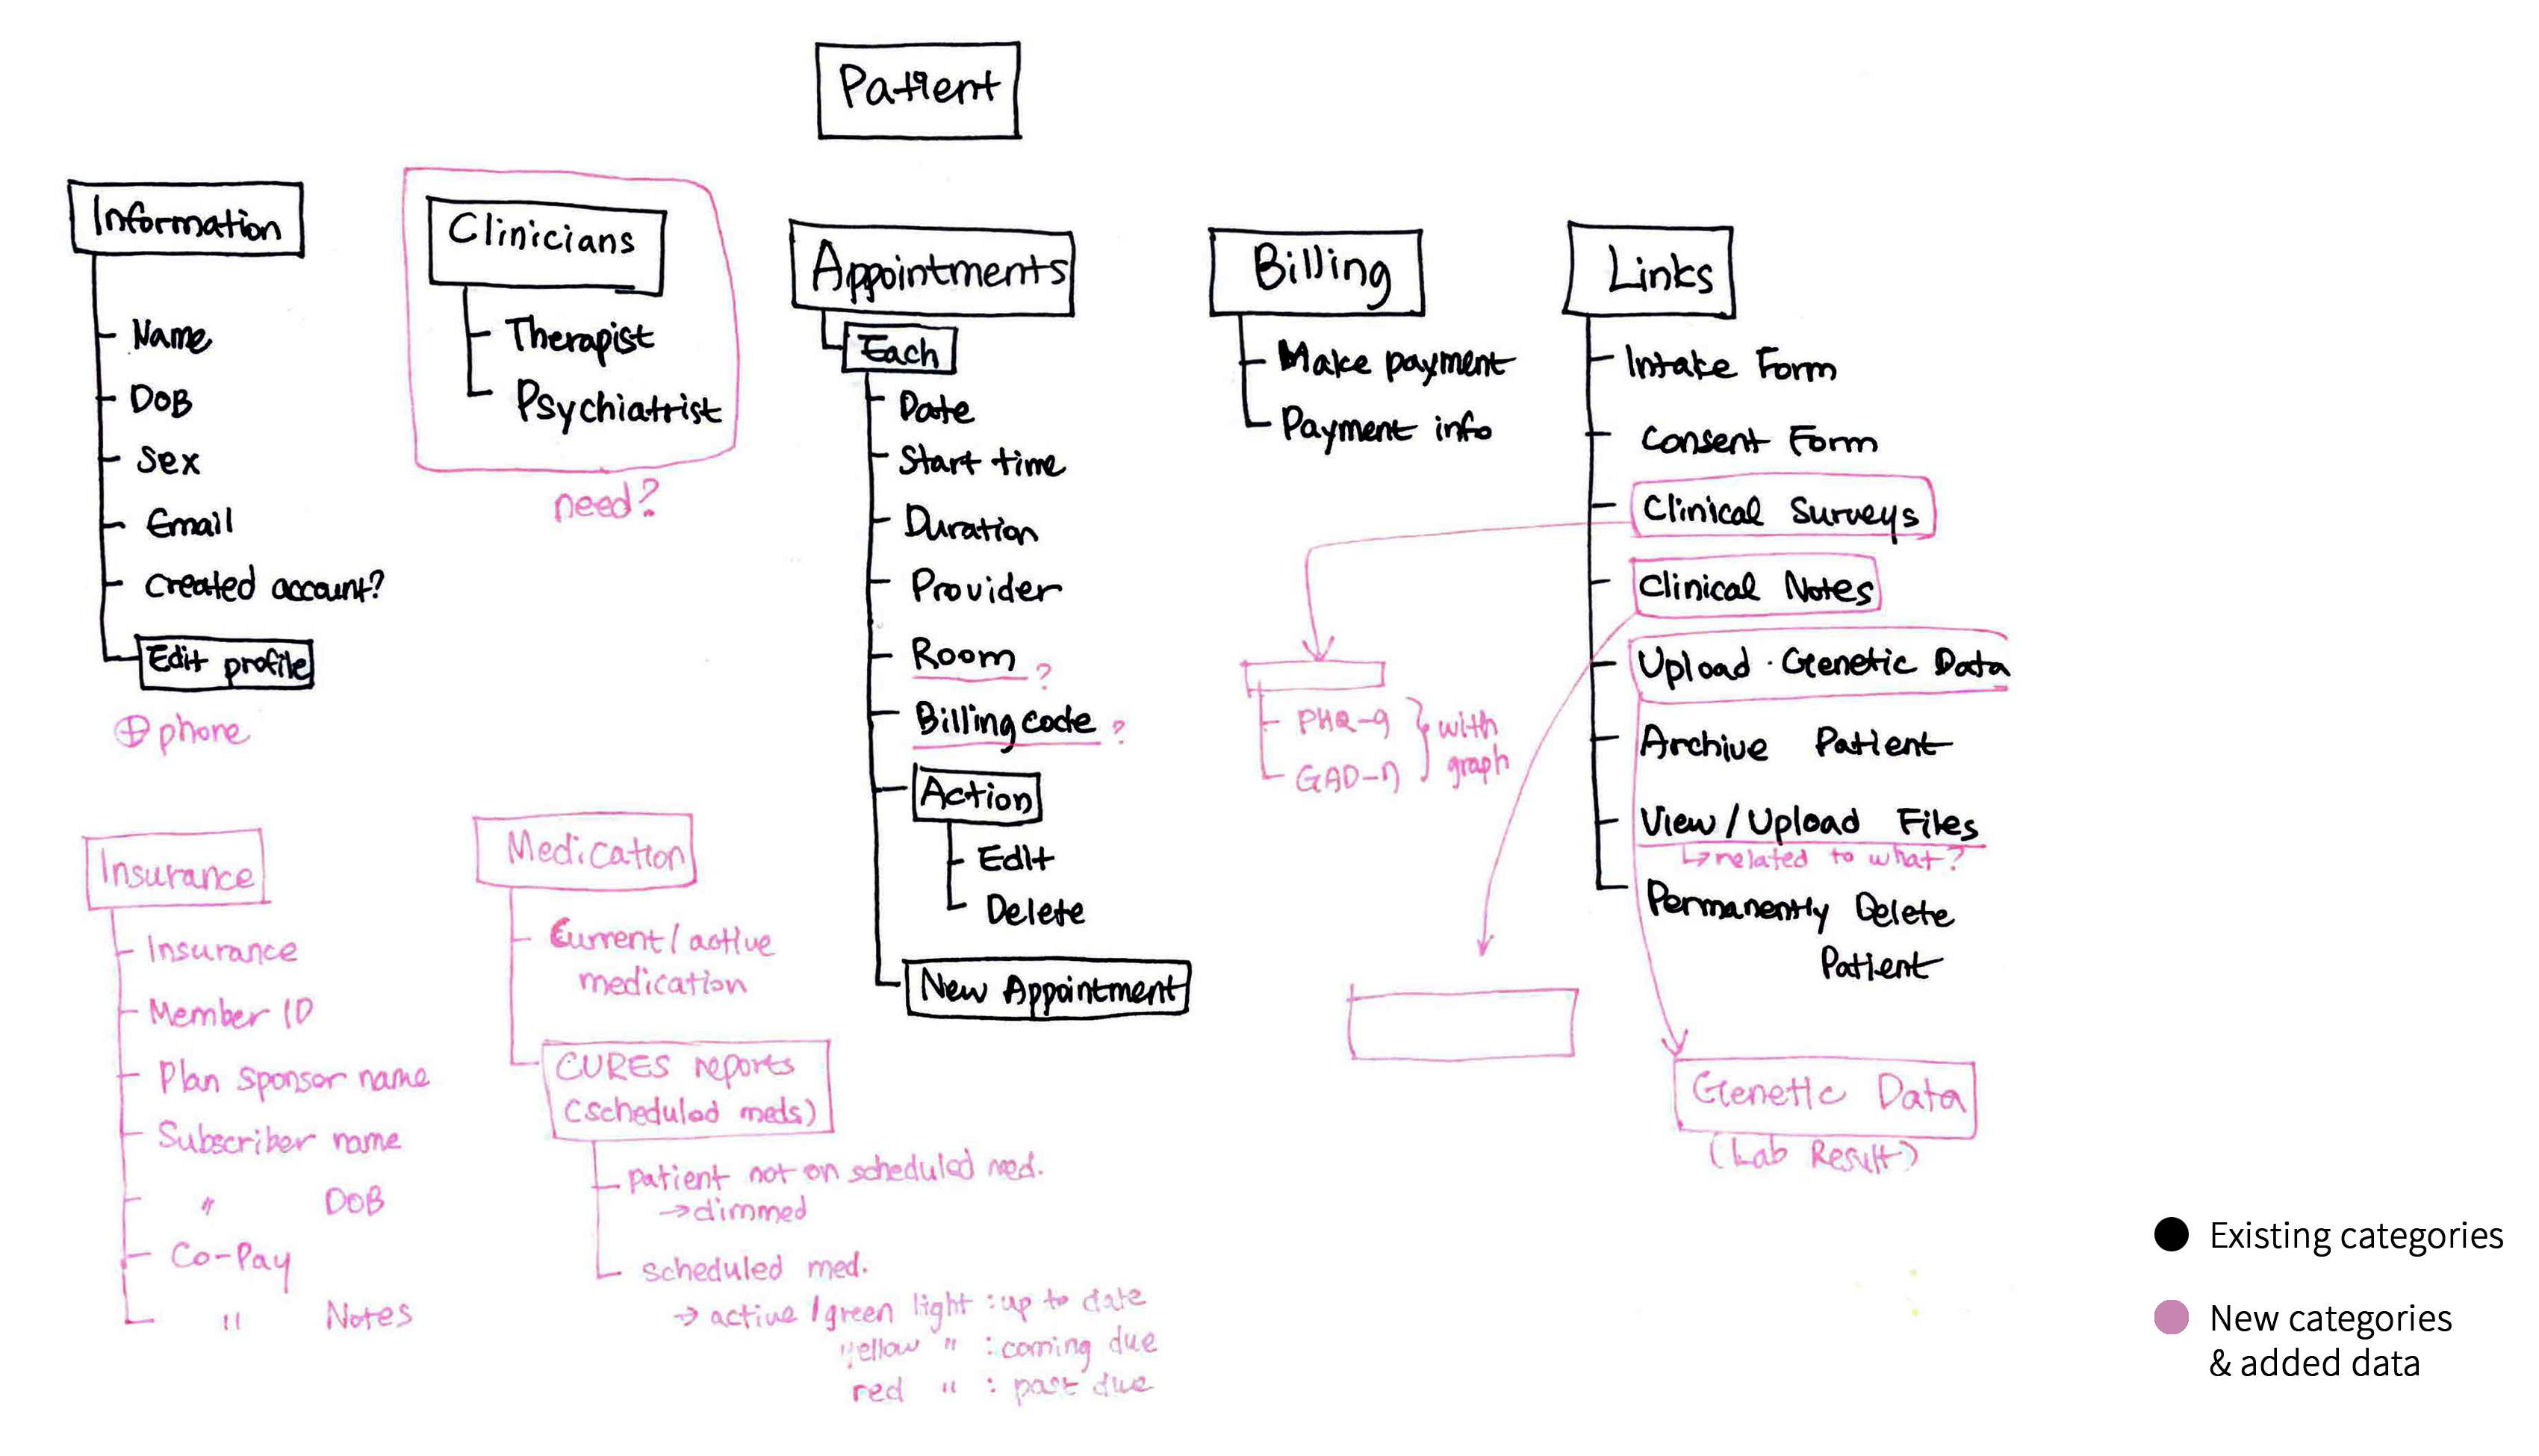 Patient
Information
Name
DoB
Sex
Email
Created account?
Edit profile
⊕ phone
Clinicians
Therapist
Psychiatrist
need?
Appointments
Each
Date
Start time
Duration
Provider
Room ?
Billing code ?
Action
Edit
Delete
New Appointment
Billing
Make payment
Payment info
Links
Intake Form
Consent Form
Clinical Surveys
Clinical Notes
Upload · Genetic Data
Archive Patient
View / Upload Files
↳ related to what?
Permanently Delete
Patient
PHQ-9
GAD-7
} with
graph
Genetic Data
(Lab Result)
Insurance
Insurance
Member ID
Plan sponsor name
Subscriber name
" DoB
Co-Pay
" Notes
Medication
Current / active
medication
CURES reports
(scheduled meds)
patient not on scheduled med.
→ dimmed
scheduled med.
→ active / green light : up to date
yellow " : coming due
red " : past due
Existing categories
New categories
& added data